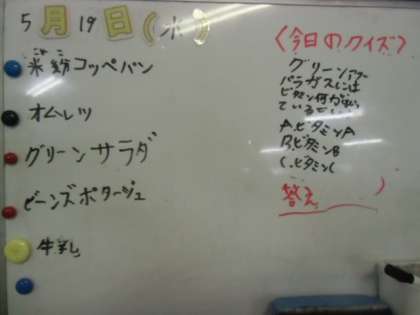 5月19日(水)
こめこ
米粉コッペパン
オムレツ
グリーンサラダ
ビーンズポタージュ
牛乳
〈今日のクイズ〉
グリーンアス
パラガスには
ビタミン何が
A.ビタミンA
B.ビタミンB
C.ビタミンC
答え